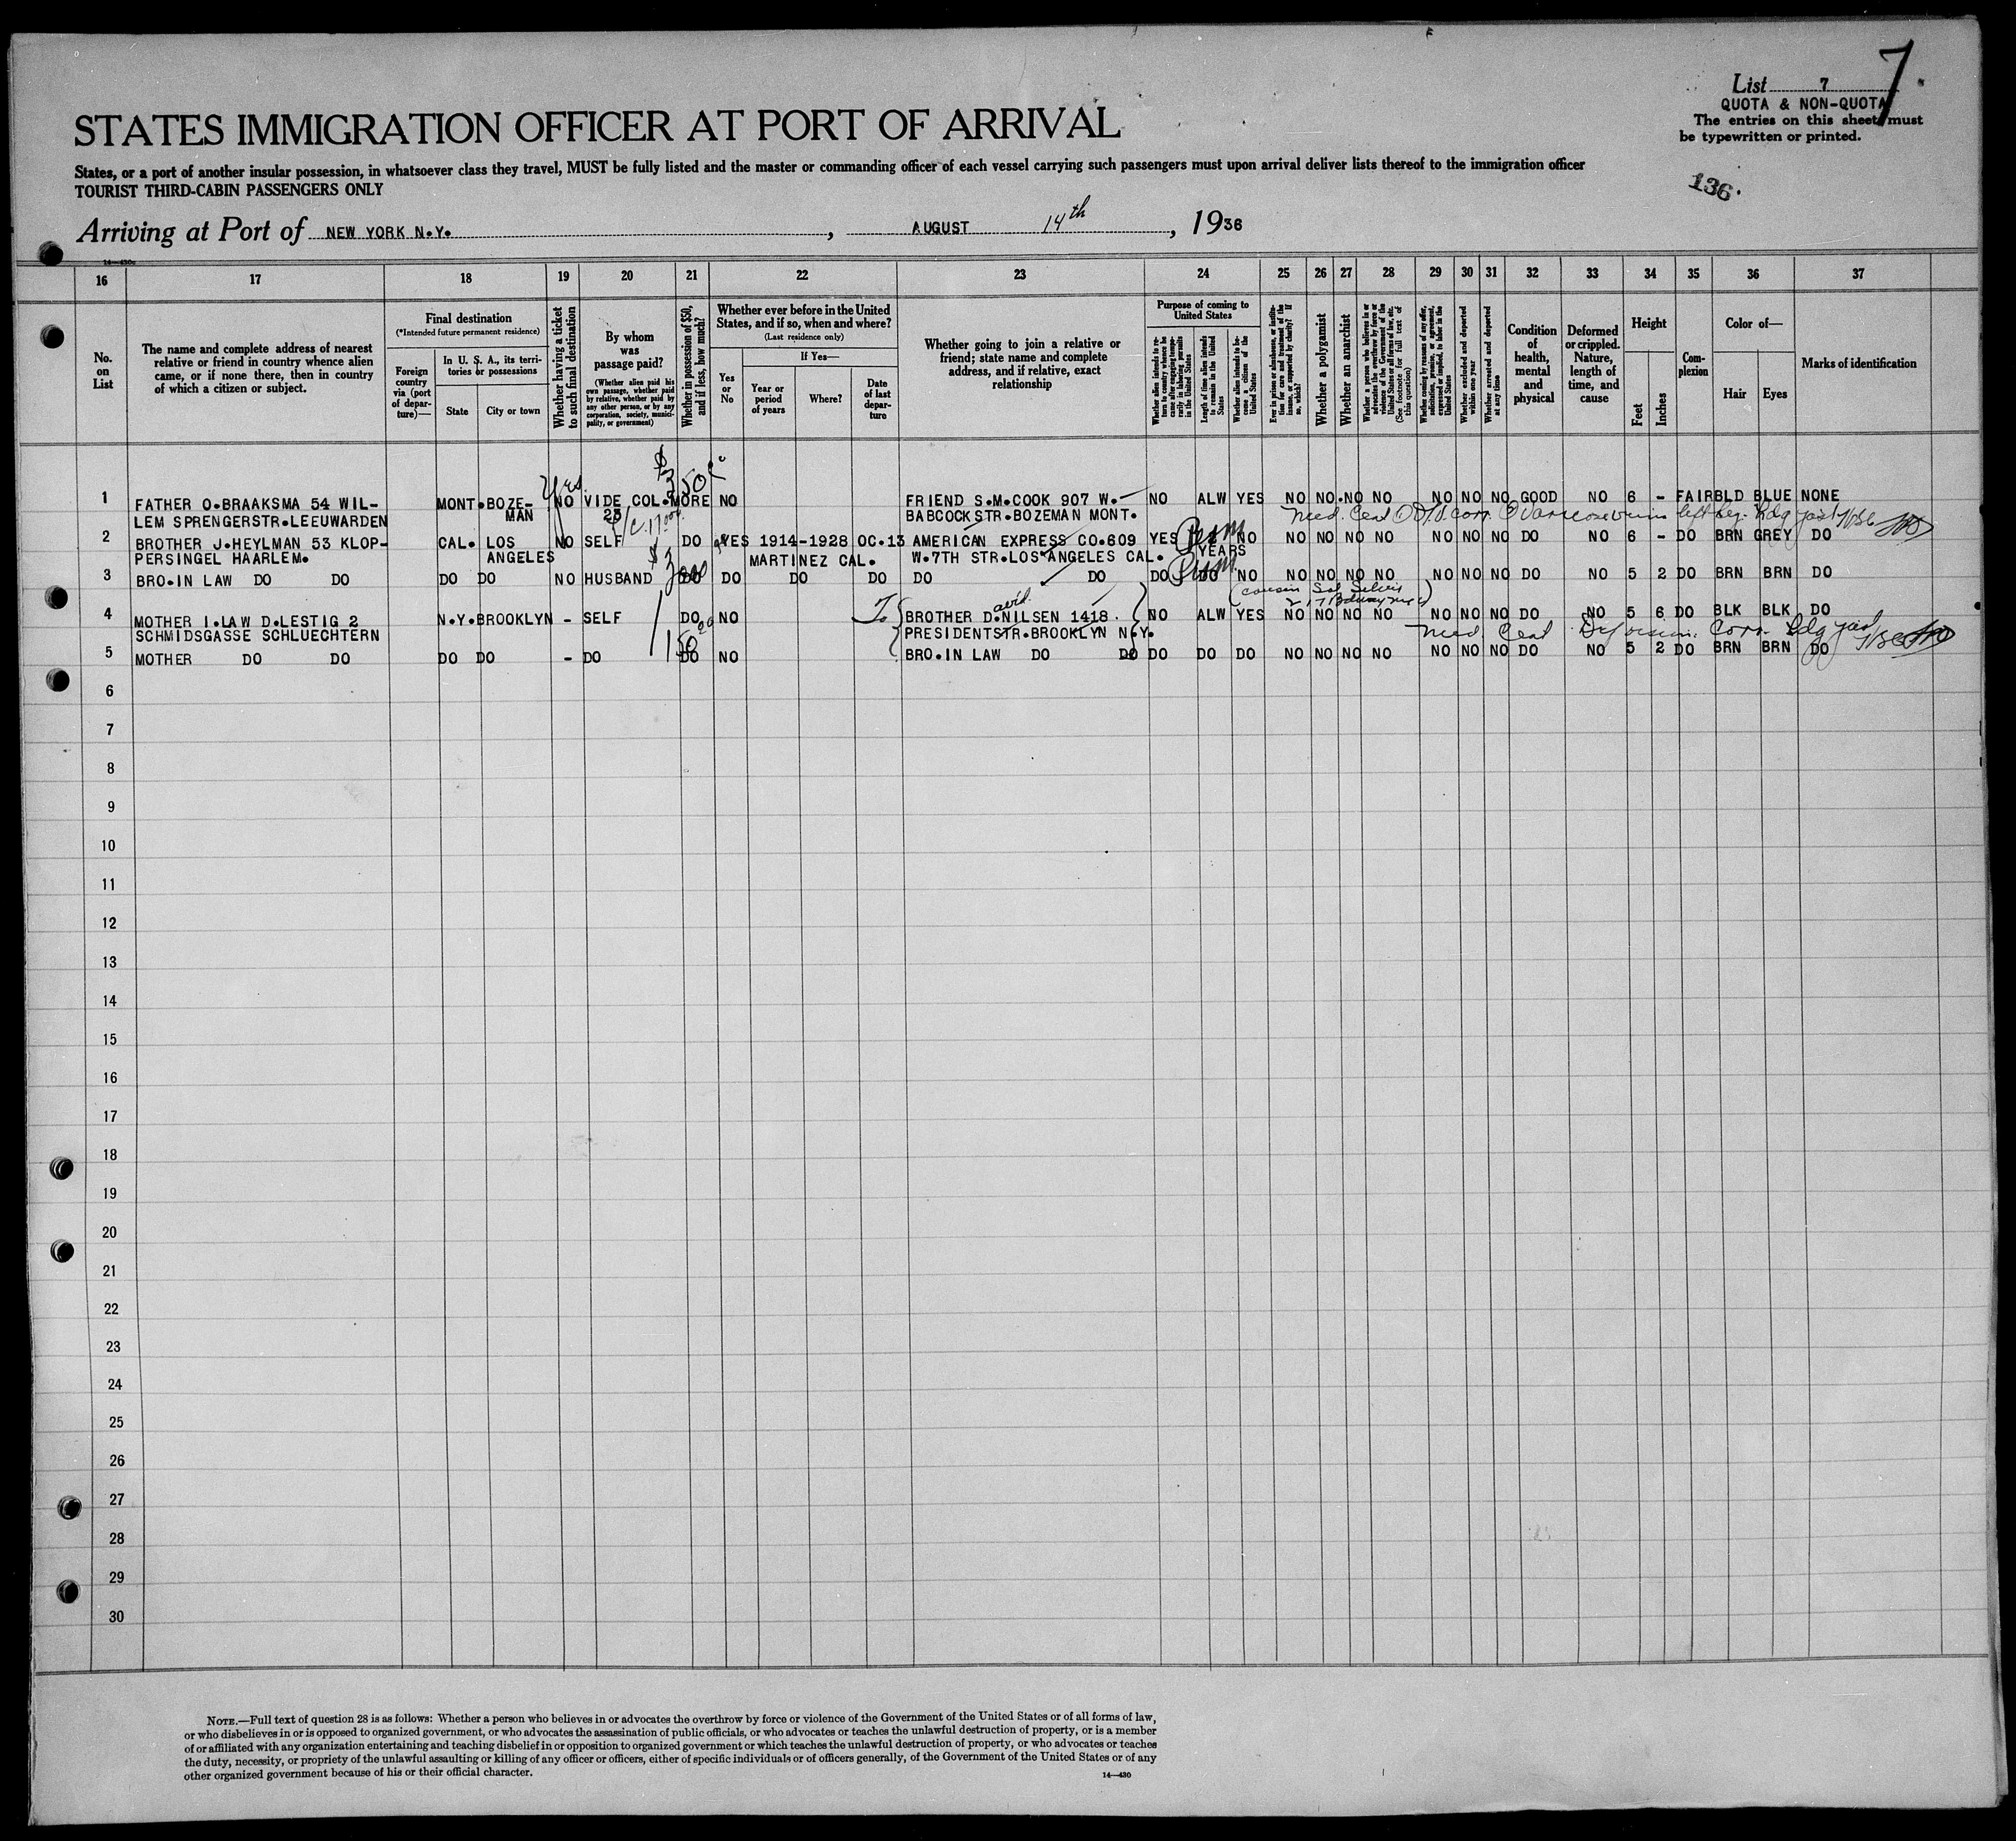 List 7
7.
QUOTA & NON-QUOTA
The entries on this sheet must
be typewritten or printed.
136.
STATES IMMIGRATION OFFICER AT PORT OF ARRIVAL
States, or a port of another insular possession, in whatsoever class they travel, MUST be fully listed and the master or commanding officer of each vessel carrying such passengers must upon arrival deliver lists thereof to the immigration officer
TOURIST THIRD-CABIN PASSENGERS ONLY
Arriving at Port of NEW YORK N.Y. , AUGUST 14th , 1936
14—430
16 17 18 19 20 21 22 23 24 25 26 27 28 29 30 31 32 33 34 35 36 37
No. on List
The name and complete address of nearest relative or friend in country whence alien came, or if none there, then in country of which a citizen or subject.
Final destination
(*Intended future permanent residence)
Foreign country via (port of departure)—
In U. S. A., its territories or possessions
State City or town
Whether having a ticket to such final destination
By whom was passage paid?
(Whether alien paid his own passage, whether paid by relative, whether paid by any other person, or by any corporation, society, municipality, or government)
Whether in possession of $50, and if less, how much?
Whether ever before in the United States, and if so, when and where?
(Last residence only)
Yes or No
If Yes—
Year or period of years
Where?
Date of last departure
Whether going to join a relative or friend; state name and complete address, and if relative, exact relationship
Purpose of coming to United States
Whether alien intends to return to country whence he came after engaging temporarily in laboring pursuits in the United States
Length of time alien intends to remain in the United States
Whether alien intends to become a citizen of the United States
Ever in prison or almshouse, or institution for care and treatment of the insane, or supported by charity? If so, which?
Whether a polygamist
Whether an anarchist
Whether a person who believes in or advocates the overthrow by force or violence of the Government of the United States or all forms of law, etc. (See footnote for full text of this question)
Whether coming by reasons of any offer, solicitation, promise, or agreement, expressed or implied, to labor in the United States
Whether excluded and deported within one year
Whether arrested and deported at any time
Condition of health, mental and physical
Deformed or crippled. Nature, length of time, and cause
Height
Feet Inches
Complexion
Color of—
Hair Eyes
Marks of identification
$ 350
Yes
1 FATHER O.BRAAKSMA 54 WIL- MONT. BOZE- NO VIDE COL. MORE NO FRIEND S.M.COOK 907 W. NO ALW YES NO NO NO NO NO NO NO GOOD NO 6 - FAIR BLD BLUE NONE
LEM SPRENGERSTR.LEEUWARDEN MAN 25 BABCOCKSTR.BOZEMAN MONT.
2 BROTHER J.HEYLMAN 53 KLOP- CAL. LOS NO SELF DO YES 1914-1928 OC.13 AMERICAN EXPRESS CO.609 YES Perm NO NO NO NO NO NO NO NO DO NO 6 - DO BRN GREY DO
PERSINGEL HAARLEM. ANGELES MARTINEZ CAL. W.7TH STR.LOS ANGELES CAL. YEARS
3 BRO.IN LAW DO DO DO DO NO HUSBAND DO DO DO DO DO DO DO Perm DO NO NO NO NO NO NO NO NO DO NO 5 2 DO BRN BRN DO
4 MOTHER I.LAW D.LESTIG 2 N.Y. BROOKLYN - SELF DO NO BROTHER D.NILSEN 1418 NO ALW YES NO NO NO NO NO NO NO DO NO 5 6 DO BLK BLK DO
SCHMIDSGASSE SCHLUECHTERN PRESIDENTSTR.BROOKLYN N.Y.
5 MOTHER DO DO DO DO - DO DO NO BRO.IN LAW DO DO DO DO DO NO NO NO NO NO NO NO DO NO 5 2 DO BRN BRN DO
6
7
8
9
10
11
12
13
14
15
16
17
18
19
20
21
22
23
24
25
26
27
28
29
30
NOTE.—Full text of question 28 is as follows: Whether a person who believes in or advocates the overthrow by force or violence of the Government of the United States or of all forms of law,
or who disbelieves in or is opposed to organized government, or who advocates the assassination of public officials, or who advocates or teaches the unlawful destruction of property, or is a member
of or affiliated with any organization entertaining and teaching disbelief in or opposition to organized government or which teaches the unlawful destruction of property, or who advocates or teaches
the duty, necessity, or propriety of the unlawful assaulting or killing of any officer or officers, either of specific individuals or of officers generally, of the Government of the United States or of any
other organized government because of his or their official character.
14—430